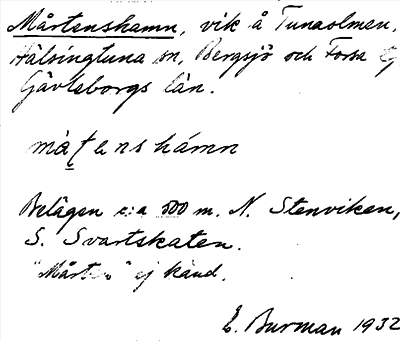 Mårtenshamn, vik å Tunaolmen,
Hälsingtuna sn, Bergsjö och Forsa tg
Gävleborgs län.
måʈenshámn
Belägen c:a 500 m. N. Stenviken,
S. Svartskaten.
"Mårten" ej känd.
E. Burman 1932